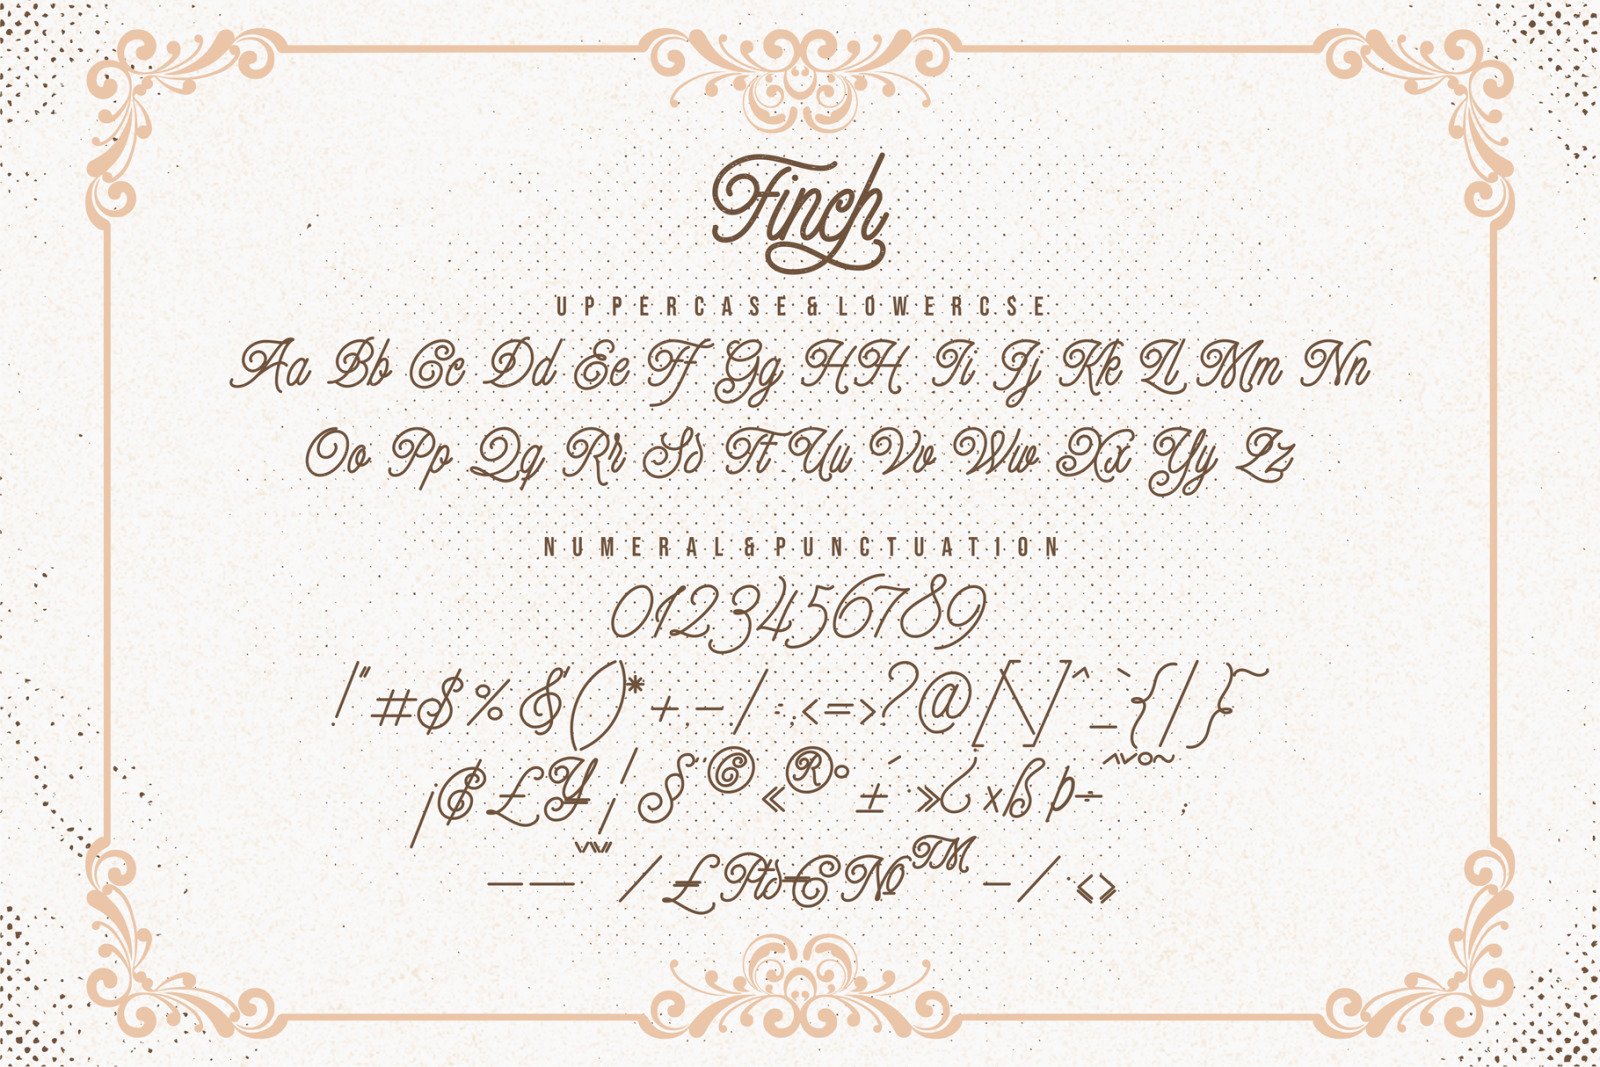 Finch
UPPERCASE & LOWERCSE
Aa Bb Cc Dd Ee Ff Gg HH Ii Jj Kk Ll Mm Nn
Oo Pp Qq Rr Ss Tt Uu Vv Ww Xx Yy Zz
NUMERAL & PUNCTUATION
0123456789
!"#$%&'()*+,-/:;<=>?@[\]^_`{|}~
¡¢£¥¦§¨©«®°±´·»¿×ßþ÷
—— ⁄ ₤ ₧ ₫ € № ™ − ∕ ∙ ◊